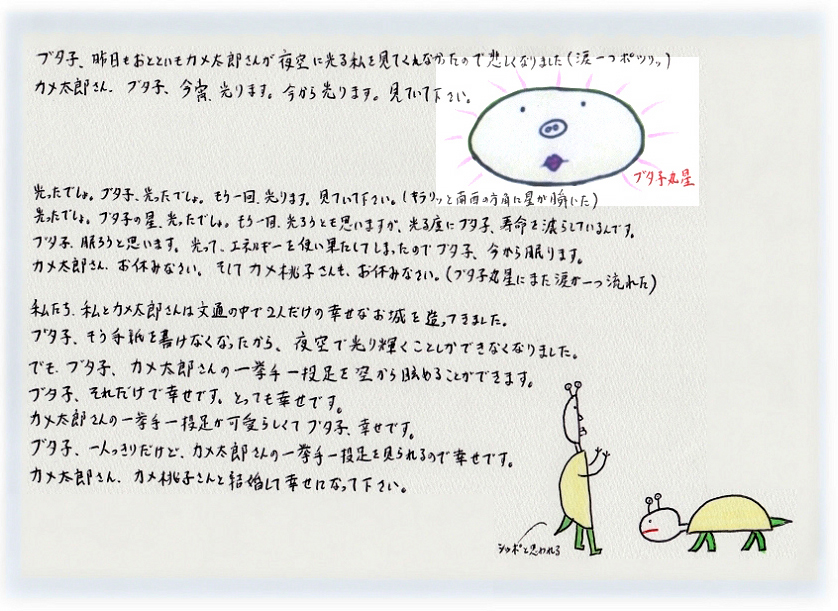 ブタ子、昨日もおとといもカメ太郎さんが夜空に光る私を見てくれなかったので悲しくなりました（涙一つポツリッ）
カメ太郎さん、ブタ子、今宵、光ります。今から光ります。見ていて下さい。
ブタ子丸星
光ったでしょ。ブタ子、光ったでしょ。もう一回、光ります。見ていて下さい。（キラリッと南西の方角に星が瞬いた）
光ったでしょ。ブタ子の星、光ったでしょ。もう一回、光ろうとも思いますが、光る度にブタ子、寿命を減らしているんです。
ブタ子、眠ろうと思います。光って、エネルギーを使い果たしてしまったのでブタ子、今から眠ります。
カメ太郎さん、お休みなさい。そしてカメ桃子さんも、お休みなさい。（ブタ子丸星にまた涙が一つ流れた）
私たち、私とカメ太郎さんは文通の中で2人だけの幸せなお城を造ってきました。
ブタ子、もう手紙を書けなくなったから、夜空で光り輝くことしかできなくなりました。
でも、ブタ子、カメ太郎さんの一挙手一投足を空から眺めることができます。
ブタ子、それだけで幸せです。とっても幸せです。
カメ太郎さんの一挙手一投足が可愛らしくてブタ子、幸せです。
ブタ子、一人っきりだけど、カメ太郎さんの一挙手一投足を見られるので幸せです。
カメ太郎さん、カメ桃子さんと結婚して幸せになって下さい。
シッポと思われる